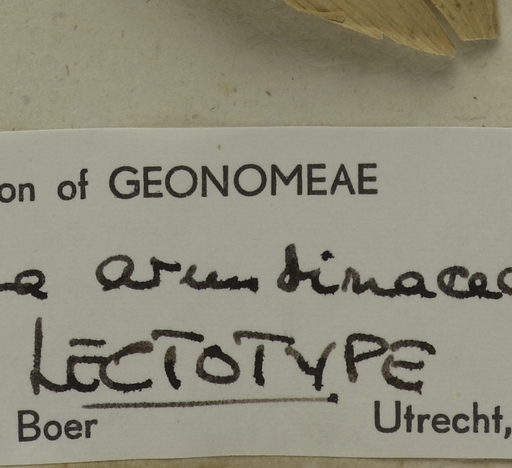 on of GEONOMEAE
a arundinacea
LECTOTYPE
Boer Utrecht,